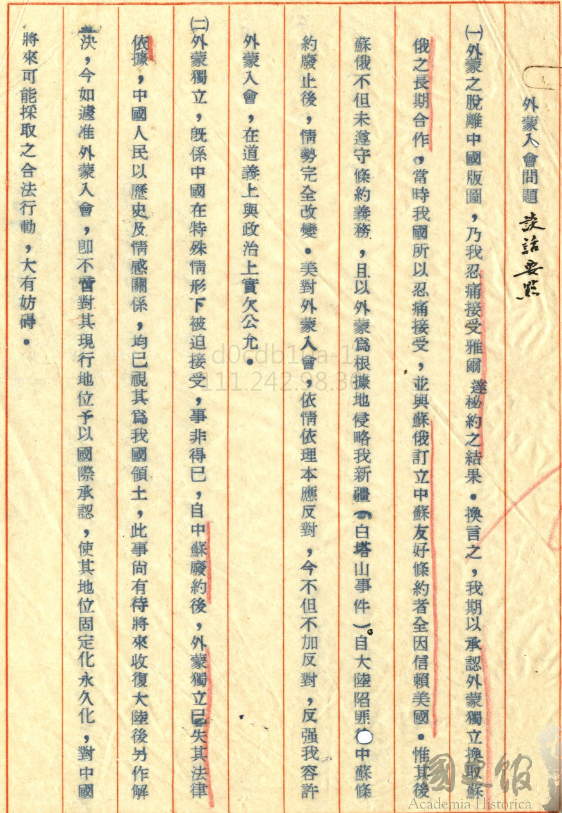 外蒙入會問題 談話要點
㈠外蒙之脫離中國版圖，乃我忍痛接受雅爾達秘約之結果。換言之，我期以承認外蒙獨立換取蘇
俄之長期合作，當時我國所以忍痛接受，並與蘇俄訂立中蘇友好條約者全因信賴美國。惟其後
蘇俄不但未遵守條約義務，且以外蒙爲根據地侵略我新疆（白塔山事件）。自大陸陷匪中蘇條
約廢止後，情勢完全改變。美對外蒙入會，依情依理本應反對，今不但不加反對，反强我容許
外蒙入會，在道義上與政治上實欠公允。
㈡外蒙獨立，旣係中國在特殊情形下被迫接受，事非得已，自中蘇廢約後，外蒙獨立已失其法律
依據，中國人民以歷史及情感關係，均已視其爲我國領土，此事尚有待將來收復大陸後另作解
決，今如遽准外蒙入會，卽不啻對其現行地位予以國際承認，使其地位固定化永久化，對中國
將來可能採取之合法行動，大有妨碍。
國史館
Academia Historica